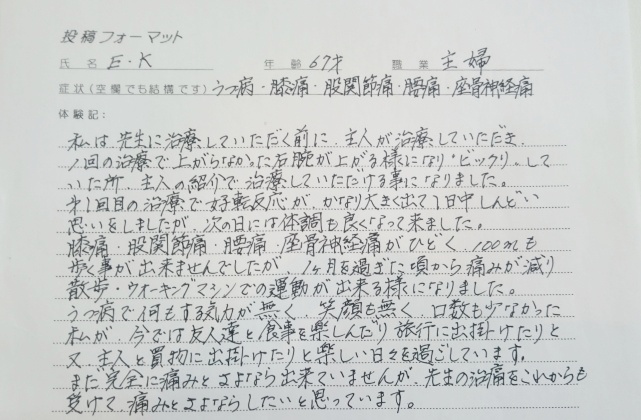 投稿フォーマット
氏名 E・K 年齢 67才 職業 主婦
症状(空欄でも結構です) うつ病・膝痛・股関節痛・腰痛・座骨神経痛
体験記:
私は先生に治療していただく前に、主人が治療していただき、
1回の治療で上がらなかった右腕が上がる様になり“ビックリ”して
いた所、主人の紹介で治療していただける事になりました。
第1回目の治療で好転反応が、かなり大きく出て1日中しんどい
思いをしましたが、次の日には体調も良くなって来ました。
膝痛・股関節痛・腰痛・座骨神経痛がひどく、100mも
歩く事が出来ませんでしたが、1ヶ月を過ぎた頃から痛みが減り
散歩・ウォーキングマシンでの運動が出来る様になりました。
うつ病で何もする気力が無く、笑顔も無く、口数も少なかった
私が、今では友人達と食事を楽しんだり旅行に出掛けたりと
又、主人と買物に出掛けたりと楽しい日々を過ごしています。
まだ完全に痛みとさよなら出来ていませんが、先生の治痛をこれからも
受けて、痛みとさよならしたいと思っています。